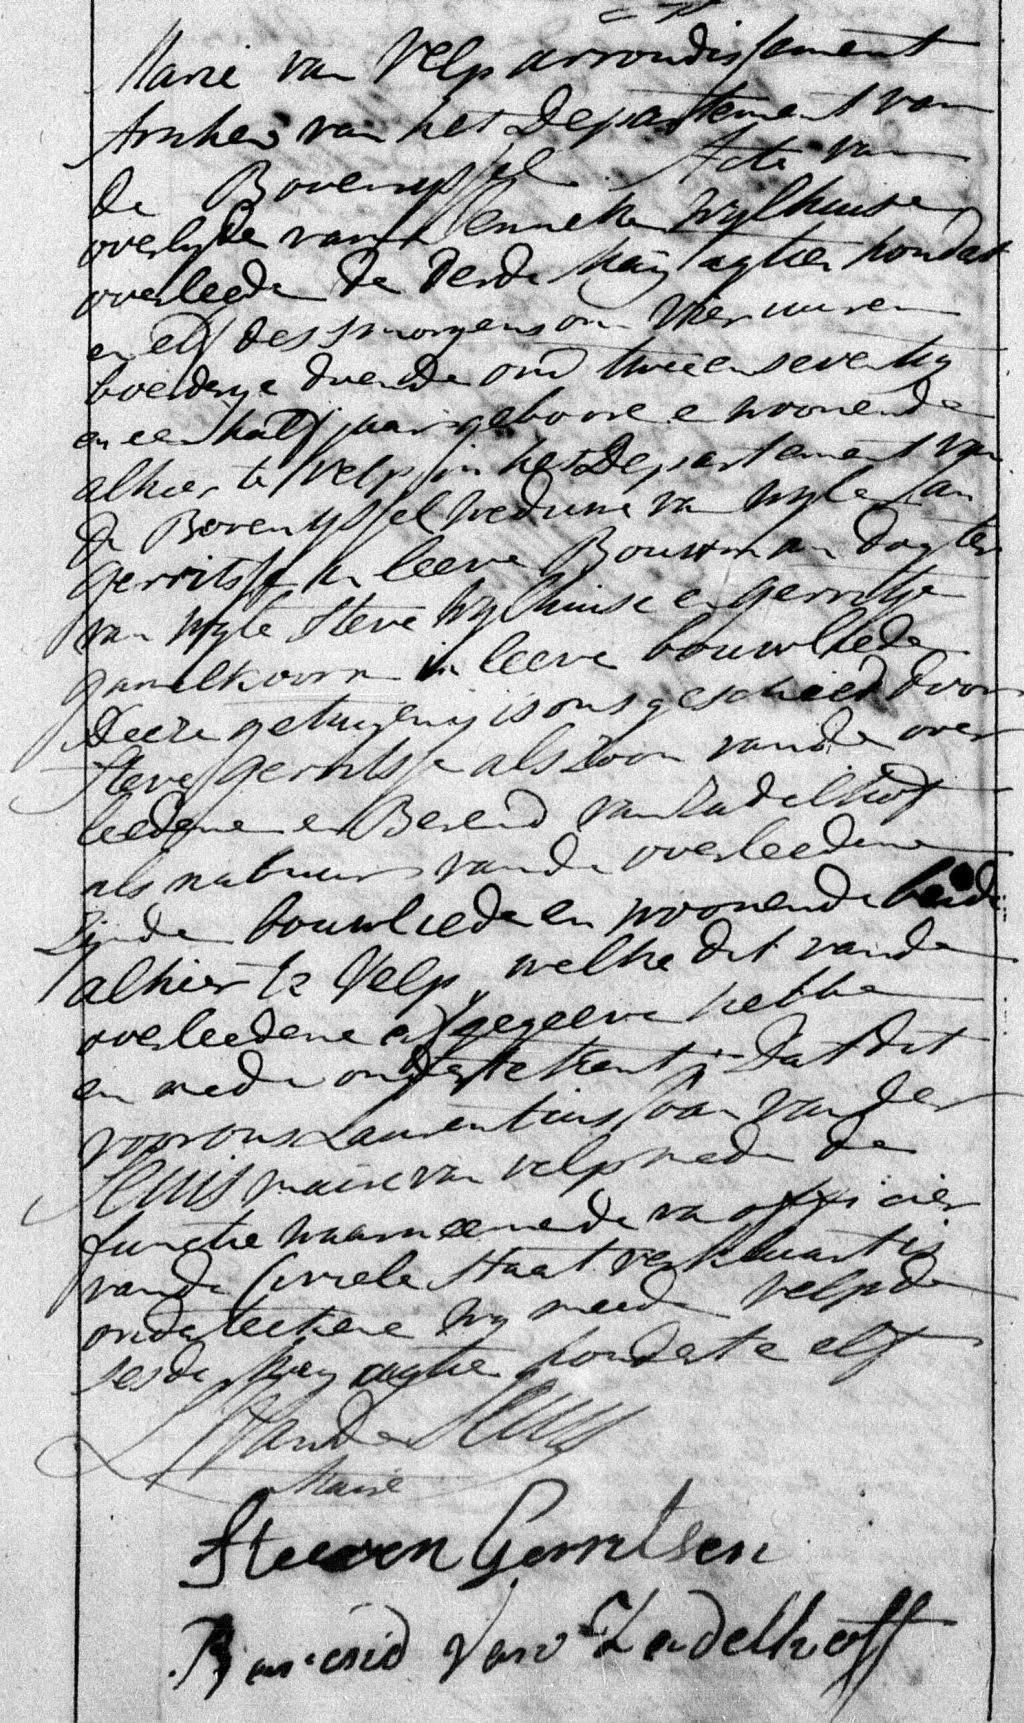 Marie van Velp arrondissement
Arnhem van het Departement van
de Bovenyssel Acte van
overlyde van Henneke Wylhuise
overleede de derde Mey agtien hondert
en elf des smorgens om vier uuren
boerderye doende oud twee en seventig
en een half jaar geboore e woonende
alhier te Velp in het Departement van
de Bovenyssel weduwe van wyle Jan
gerritse in leeve Bouwman dogter
van wyle Steve Wylhuise en gerritje
in leeve bouwliede
Deeze getuigenis is ons geschied door
Steve gerritsse als zoon van de over
leedene en Berend van Zadelhof
als nabuur van de overleedene
Zynde bouwliede en woonende beide
alhier te Velp welke dit van de
overleedene opgegeeve hebbe
en mede onderteekent Dat dit
voor ons Laurentius Jan van der
Sluis maire van velp mede de
functie waarneemende van officier
van de Civiele Staat verklaart is
onderteekene wy meede velp de
sesde Mey agtien honderte elf
L J van der Sluis
Maire
Steeven Gerritsen
Barend van Zadelhoff